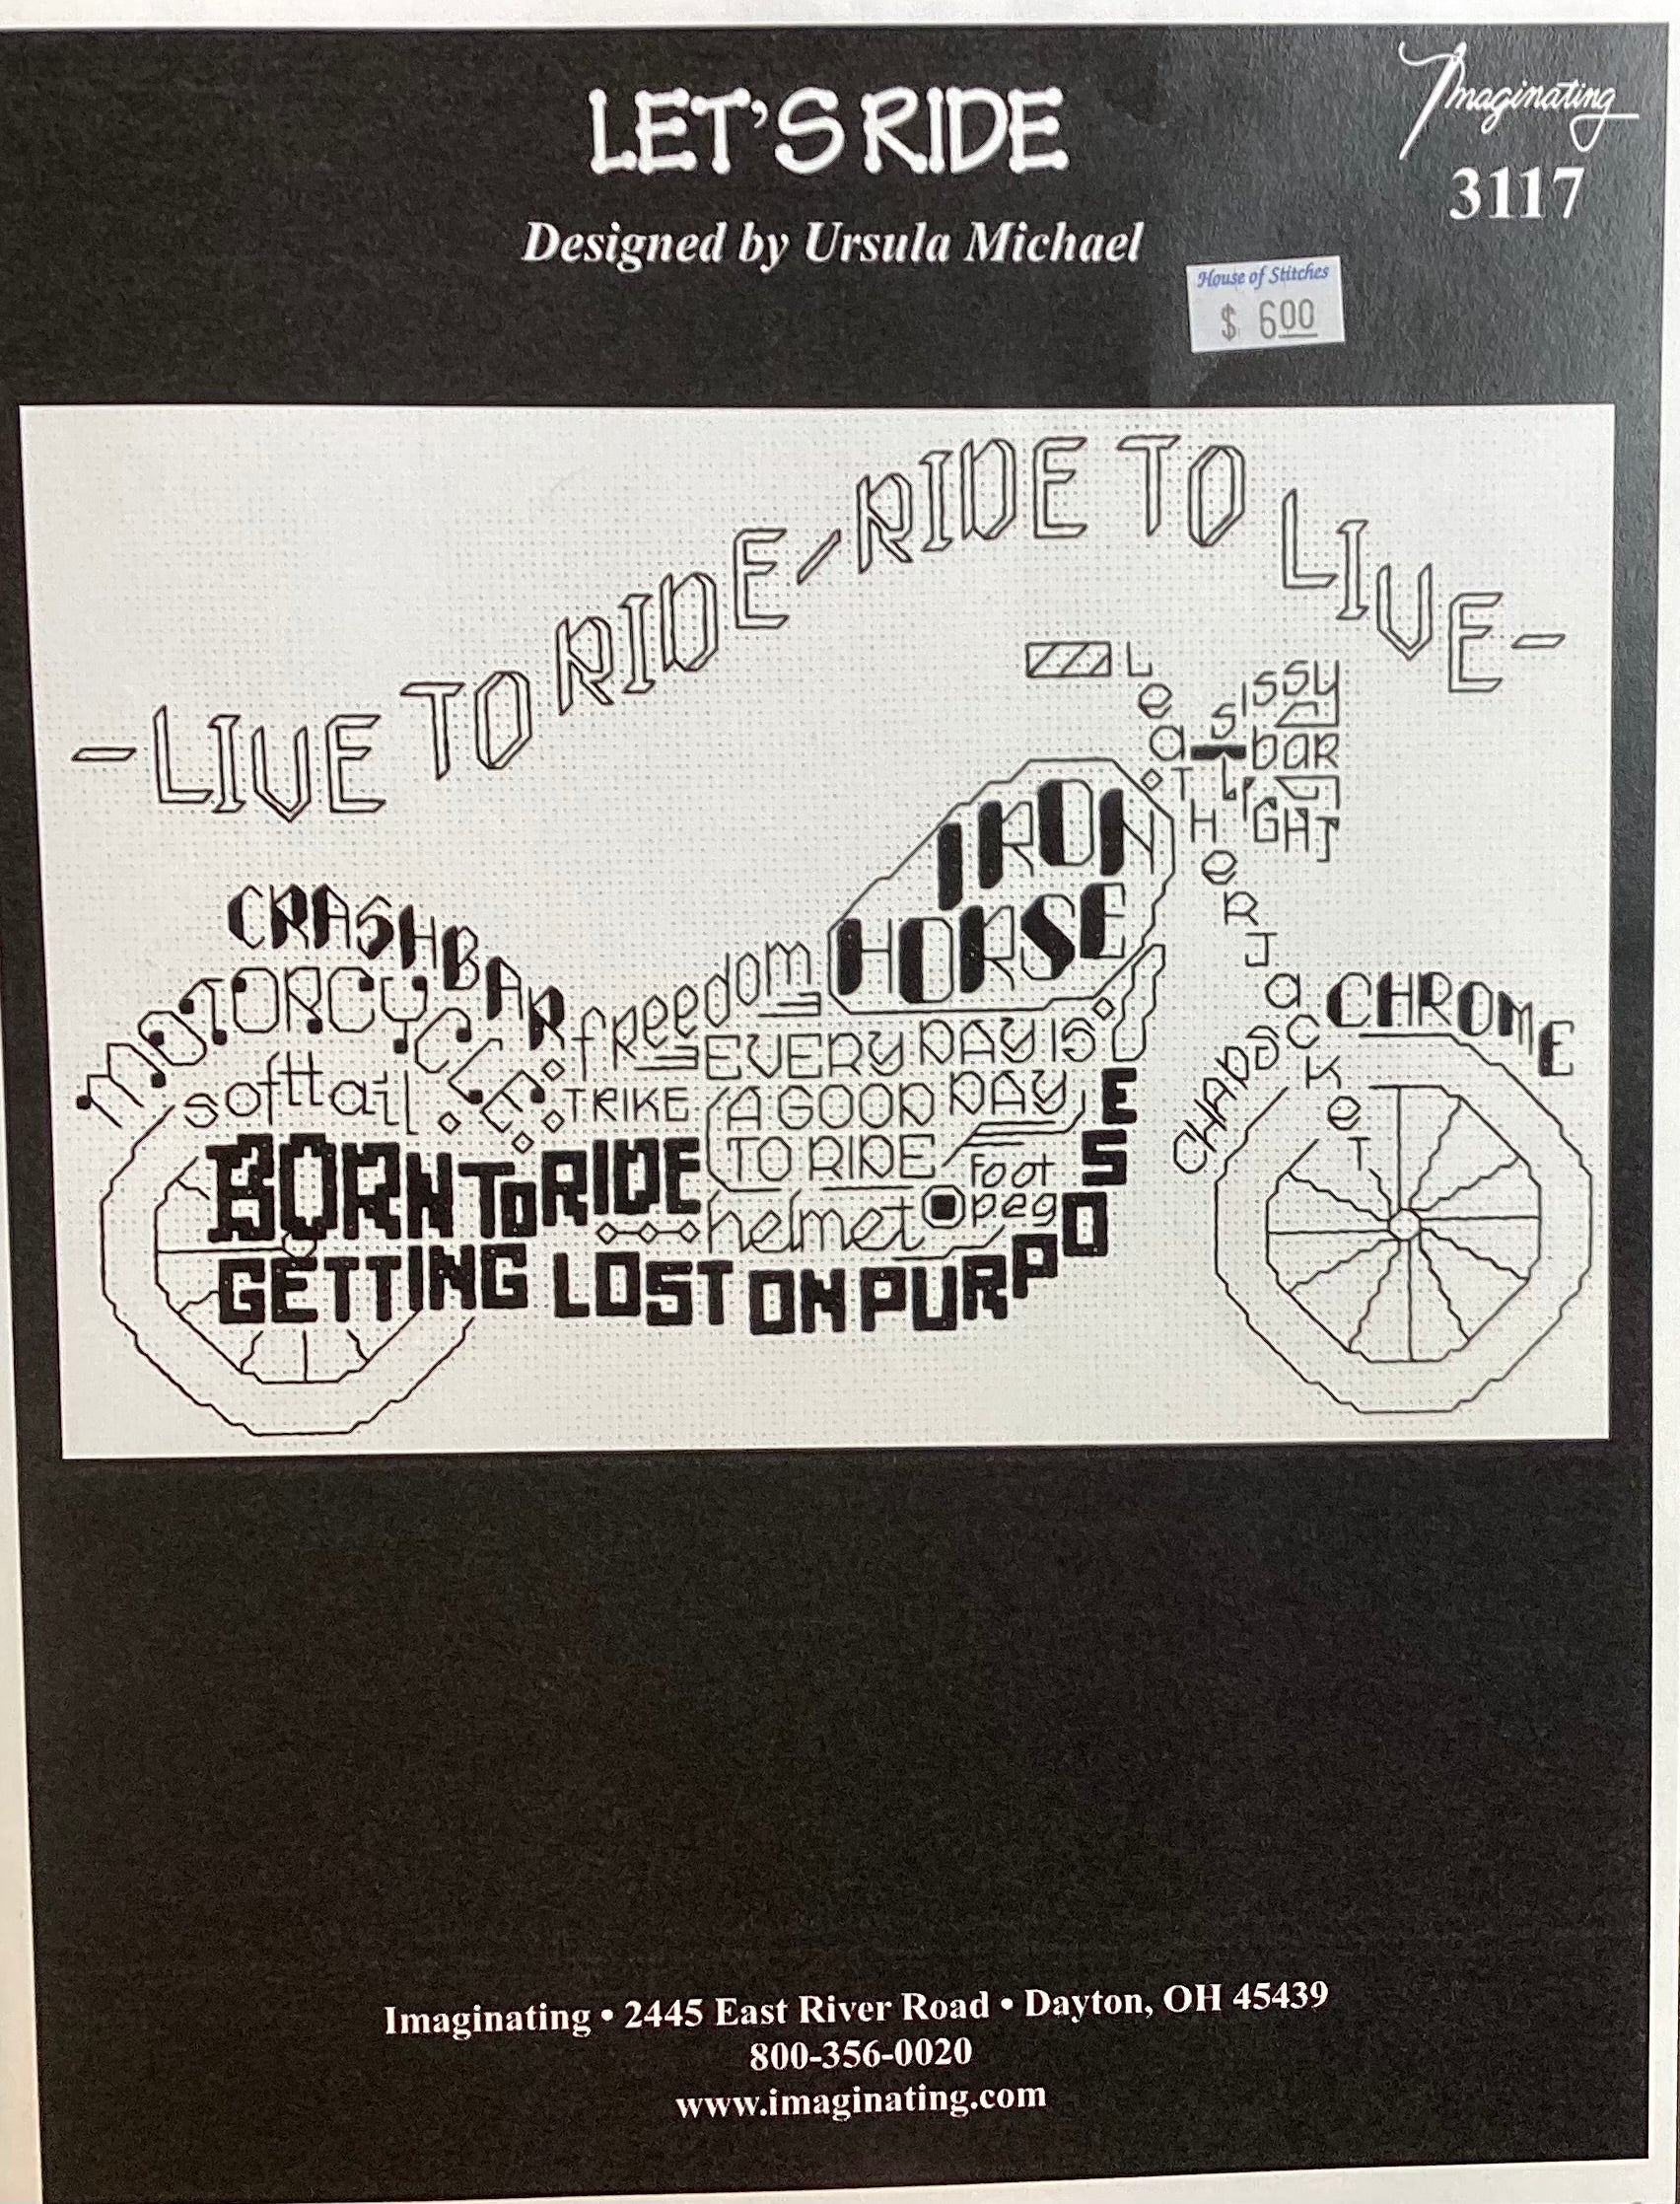 LET'S RIDE
Imaginating
3117
Designed by Ursula Michael
House of Stitches
$ 600
-LIVE TO RIDE/RIDE TO LIVE-
LeaTHeRJacKeT
SISSY
baR
LIGHT
IRON
HORSE
CRASHBAR
MOTORCYCLE
freedom
softtail
TRIKE
EVERY DAY IS
A GOOD DAY
TO RIDE
CHROME
BORN TO RIDE
foot
peg
helmet
GETTING LOST ON PURPOSE
Imaginating • 2445 East River Road • Dayton, OH 45439
800-356-0020
www.imaginating.com